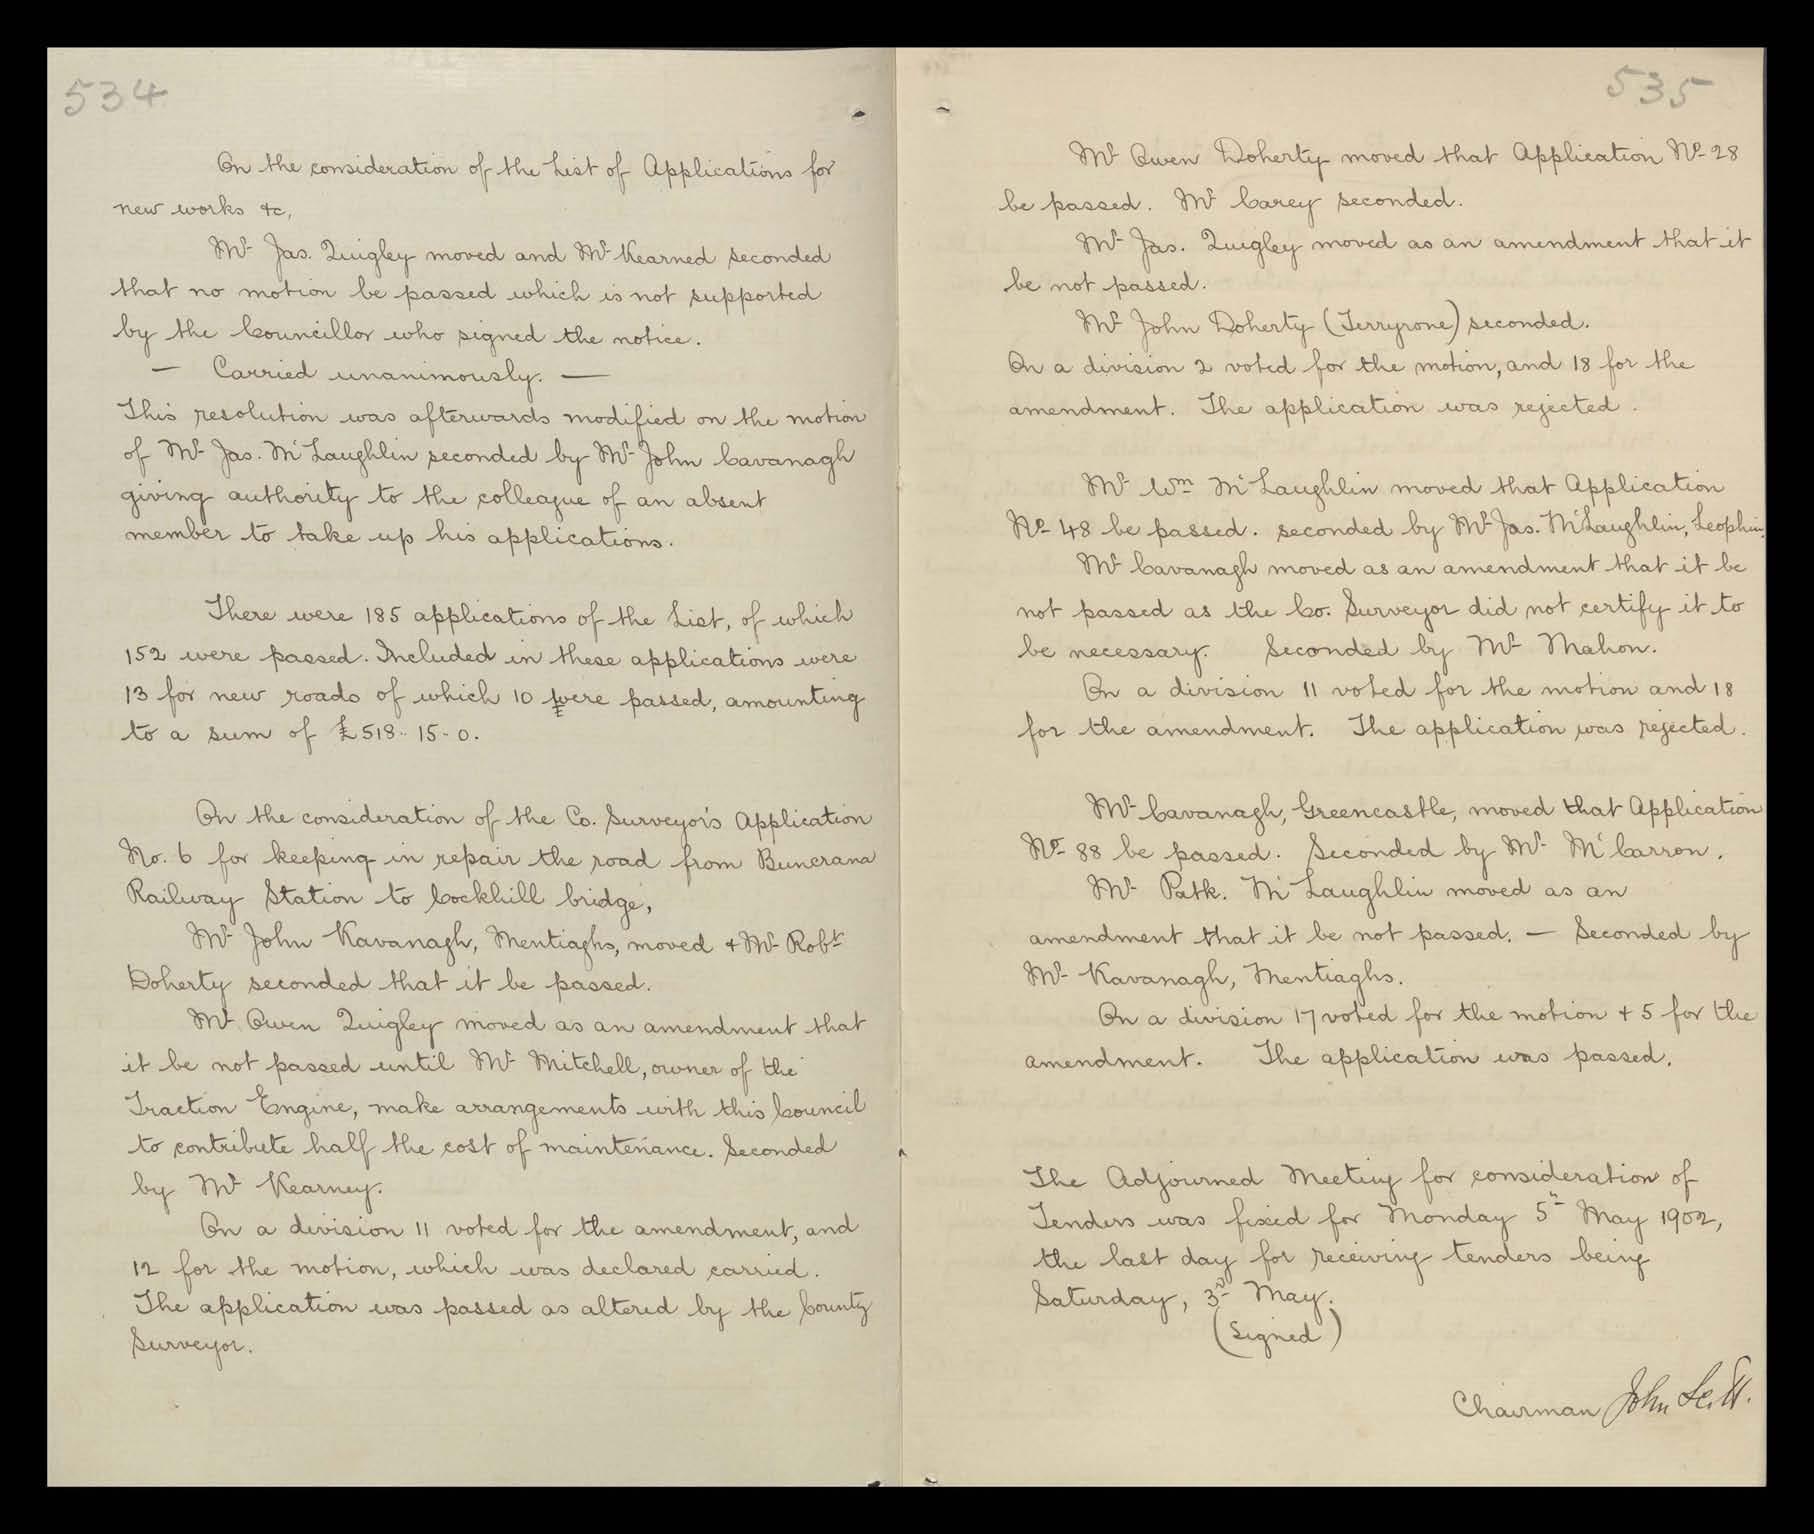 534
On the consideration of the List of Applications for
new works &c,
Mr Jas. Quigley moved and Mr Kearned seconded
that no motion be passed which is not supported
by the Councillor who signed the notice.
— Carried unanimously. —
This resolution was afterwards modified on the motion
of Mr Jas. McLaughlin seconded by Mr John Cavanagh
giving authority to the colleague of an absent
member to take up his applications.
There were 185 applications of the List, of which
152 were passed. Included in these applications were
13 for new roads of which 10 were passed, amounting
to a sum of £518-15-0.
On the consideration of the Co. Surveyor's Application
No. 6 for keeping in repair the road from Buncrana
Railway Station to Cockhill bridge,
Mr John Kavanagh, Mentiaghs, moved & Mr Robt
Doherty seconded that it be passed.
Mr Owen Quigley moved as an amendment that
it be not passed until Mr Mitchell, owner of the
Traction Engine, make arrangements with this Council
to contribute half the cost of maintenance. Seconded
by Mr Kearney.
On a division 11 voted for the amendment, and
12 for the motion, which was declared carried.
The application was passed as altered by the County
Surveyor.
535
Mr Owen Doherty moved that Application No 28
be passed. Mr Carey seconded.
Mr Jas. Quigley moved as an amendment that it
be not passed.
Mr John Doherty (Terryrone) seconded.
On a division 2 voted for the motion, and 18 for the
amendment. The application was rejected.
Mr Wm McLaughlin moved that Application
No 48 be passed. seconded by Mr Jas. McLaughlin,
Mr Cavanagh moved as an amendment that it be
not passed as the Co. Surveyor did not certify it to
be necessary. Seconded by Mr Mahon.
On a division 11 voted for the motion and 18
for the amendment. The application was rejected.
Mr Cavanagh, Greencastle, moved that Application
No 88 be passed. Seconded by Mr McCarron.
Mr Patk. McLaughlin moved as an
amendment that it be not passed. — Seconded by
Mr Kavanagh, Mentiaghs.
On a division 17 voted for the motion & 5 for the
amendment. The application was passed.
The Adjourned Meeting for consideration of
Tenders was fixed for Monday 5th May 1902,
the last day for receiving tenders being
Saturday, 3rd May.
(Signed)
Chairman John